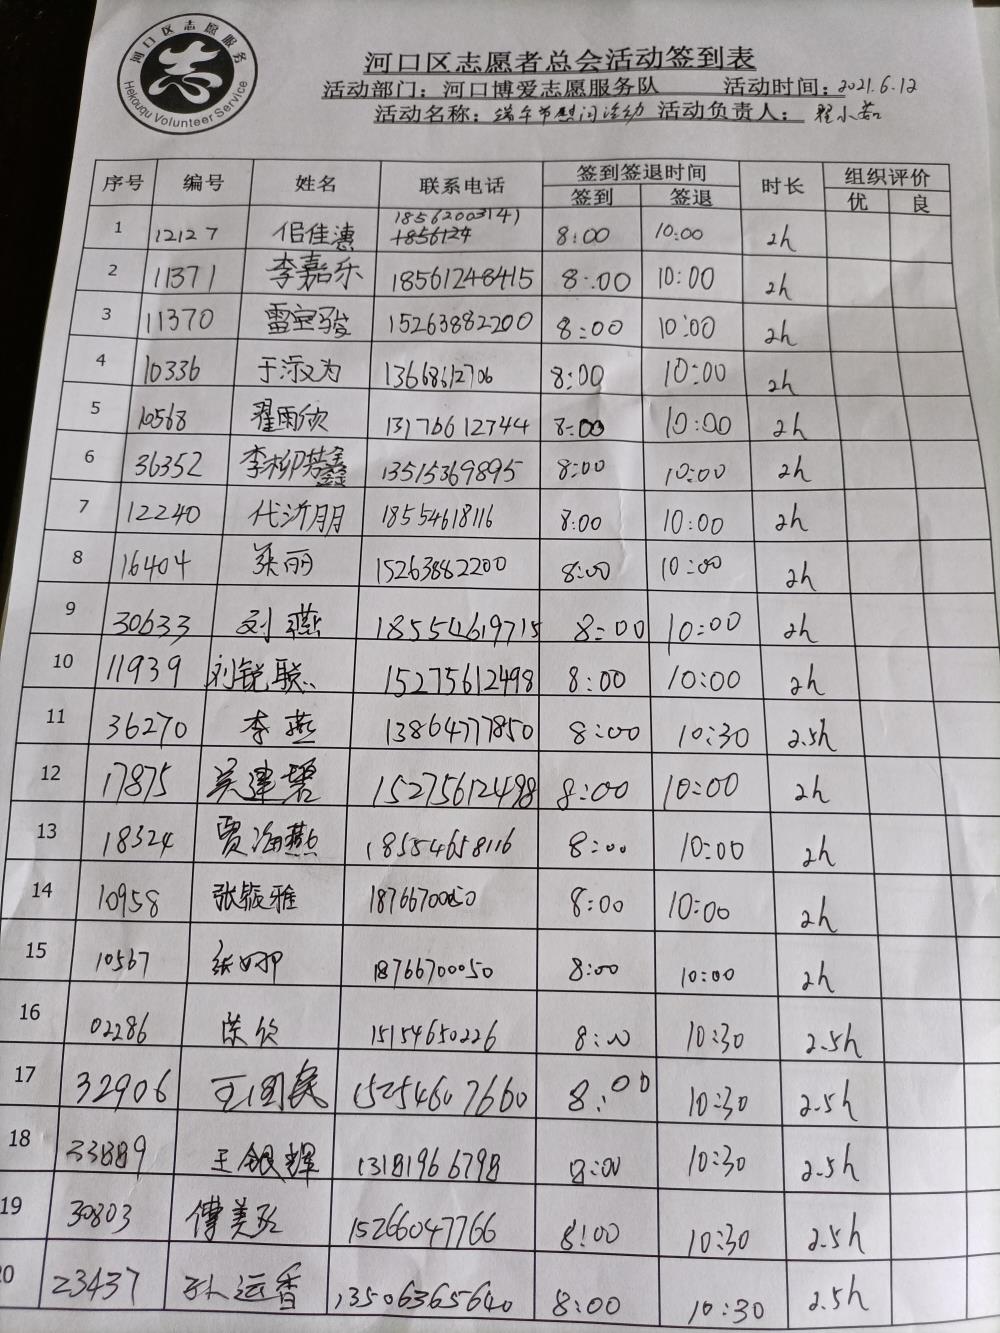 河口区志愿服务
志
Hekouqu Volunteer Service
河口区志愿者总会活动签到表
活动部门：河口博爱志愿服务队 活动时间：2021.6.12
活动名称：端午节慰问活动 活动负责人：翟小茹
序号 编号 姓名 联系电话 签到签退时间 时长 组织评价
签到 签退 优 良
1 12127 佀佳惠 18562003141 8:00 10:00 2h
2 11371 李嘉乐 18561248415 8:00 10:00 2h
3 11370 雷宝骏 15263882200 8:00 10:00 2h
4 10336 于添为 13668612706 8:00 10:00 2h
5 10568 翟雨欣 13176612744 8:00 10:00 2h
6 36352 李柳琪鑫 13515369895 8:00 10:00 2h
7 12240 代沂朋 18554618116 8:00 10:00 2h
8 16404 张丽 15263882200 8:00 10:00 2h
9 30633 刘燕 18554619715 8:00 10:00 2h
10 11939 刘锐聪 15275612498 8:00 10:00 2h
11 36270 李燕 13864777850 8:00 10:30 2.5h
12 17875 吴建碧 15275612498 8:00 10:00 2h
13 18324 贾海燕 18554658116 8:00 10:00 2h
14 10958 张馥雅 18766700050 8:00 10:00 2h
15 10567 张 18766700050 8:00 10:00 2h
16 02286 陈欣 15154650226 8:00 10:30 2.5h
17 32906 王国民 15254607660 8:00 10:30 2.5h
18 33889 王银辉 13181966798 8:00 10:30 2.5h
19 30803 傅美玲 15266047766 8:00 10:30 2.5h
20 23437 孙运香 13506365640 8:00 10:30 2.5h